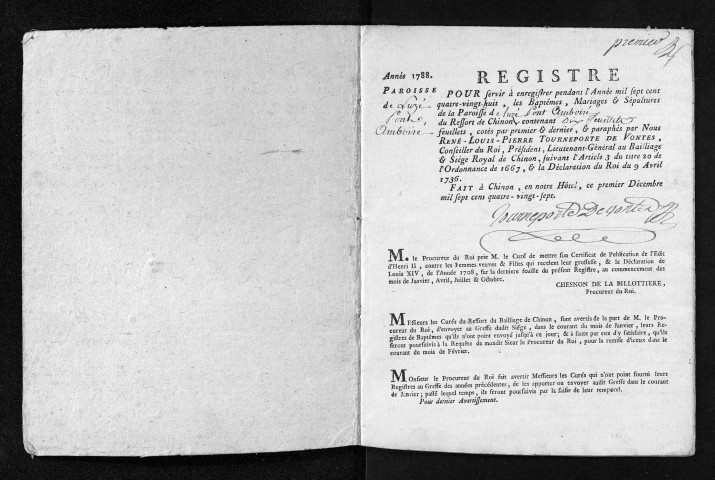 premier
Année 1788.
REGISTRE
PAROISSE
de Luzé
Pont
Amboise
POUR servir à enregistrer pendant l'Année mil sept cent
quatre-vingt-huit, les Baptêmes, Mariages & Sépultures
de la Paroisse de Luzé Pont Amboise
du Ressort de Chinon, contenant feuillets
feuillets, cotés par premier & dernier, & paraphés par Nous
RENÉ-LOUIS-PIERRE TOURNEPORTE DE VONTES,
Conseiller du Roi, Président, Lieutenant-Général au Bailliage
& Siége Royal de Chinon, suivant l'Article 3 du titre 20 de
l'Ordonnance de 1667, & la Déclaration du Roi du 9 Avril
1736.
FAIT à Chinon, en notre Hôtel, ce premier Décembre
mil sept cent quatre-vingt-sept.
Tourneporte De Vontes
M. le Procureur du Roi prie M. le Curé de mettre son Certificat de Publication de l'Edit
d'Henri II, contre les Femmes veuves & Filles qui recelent leur grossesse, & la Déclaration de
Louis XIV, de l'Année 1708, sur la derniere feuille du présent Registre, au commencement des
mois de Janvier, Avril, Juillet & Octobre.
CHESNON DE LA BILLOTTIERE,
Procureur du Roi.
MEssieurs les Curés du Ressort du Bailliage de Chinon, sont avertis de la part de M. le Pro-
cureur du Roi, d'envoyer au Greffe dudit Siége, dans le courant du mois de Janvier, leurs Re-
gistres de Baptêmes qu'ils n'ont point envoyé jusqu'à ce jour; & à faute par eux d'y satisfaire, qu'ils
seront poursuivis à la Requête de mondit Sieur le Procureur du Roi, pour la remise d'iceux dans le
courant du mois de Février.
MOnsieur le Procureur du Roi fait avertir Messieurs les Curés qui n'ont point fourni leurs
Registres au Greffe des années précédentes, de les apporter ou envoyer audit Greffe dans le courant
de Janvier; passé lequel temps, ils seront poursuivis par la saisie de leur temporel.
Pour dernier Avertissement.